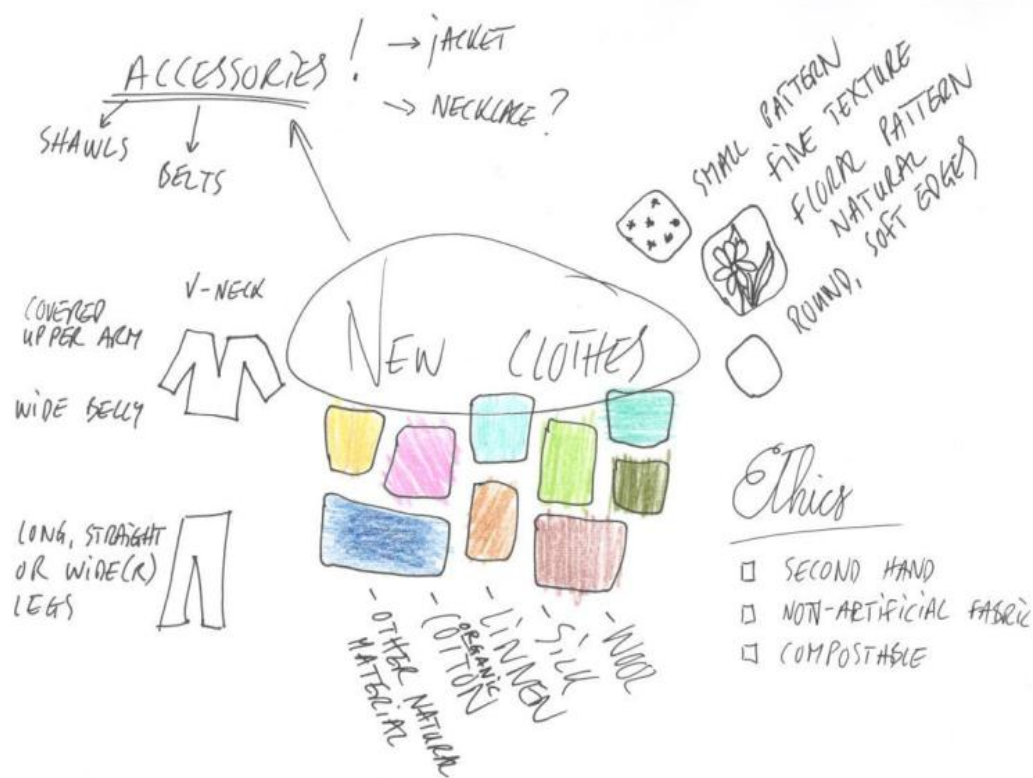 ACCESSORIES!
→ JACKET
→ NECKLACE?
SHAWLS
BELTS
SMALL PATTERN
FINE TEXTURE
FLORAL PATTERN
NATURAL
ROUND, SOFT EDGES
NEW CLOTHES
V-NECK
COVERED
UPPER ARM
WIDE BELLY
LONG, STRAIGHT
OR WIDE(R)
LEGS
- OTHER NATURAL
MATERIAL
- ORGANIC
COTTON
- LINNEN
- SILK
- WOOL
Ethics
□ SECOND HAND
□ NON-ARTIFICIAL FABRIC
□ COMPOSTABLE